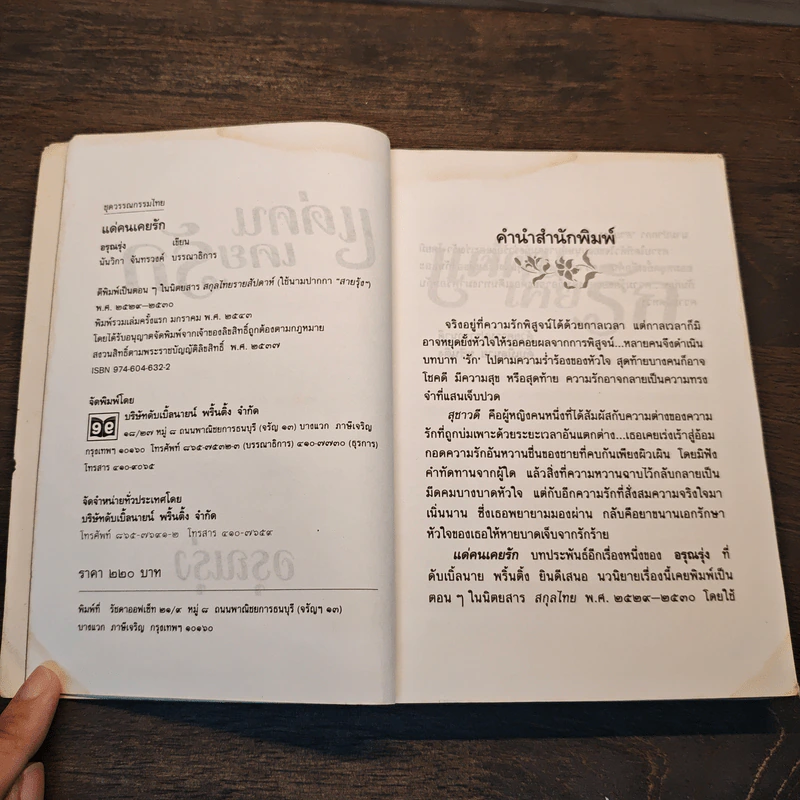 ชุดวรรณกรรมไทย
แด่คนเคยรัก
อรุณรุ่ง เขียน
นันวิกา จันทรวงศ์ บรรณาธิการ
ตีพิมพ์เป็นตอน ๆ ในนิตยสาร สกุลไทยรายสัปดาห์ (ใช้นามปากกา "สายรุ้ง")
พ.ศ. ๒๕๒๙–๒๕๓๐
พิมพ์รวมเล่มครั้งแรก มกราคม พ.ศ. ๒๕๔๓
โดยได้รับอนุญาตจัดพิมพ์จากเจ้าของลิขสิทธิ์ถูกต้องตามกฎหมาย
สงวนสิทธิ์ตามพระราชบัญญัติลิขสิทธิ์ พ.ศ. ๒๕๓๗
ISBN 974-604-632-2
จัดพิมพ์โดย
๑๑ บริษัทดับเบิ้ลนายน์ พริ้นติ้ง จำกัด
๑๘/๒๗ หมู่ ๘ ถนนพาณิชยการธนบุรี (จรัญ ๑๓) บางแวก ภาษีเจริญ
กรุงเทพฯ ๑๐๑๖๐ โทรศัพท์ ๘๖๕-๗๕๓๒-๓ (บรรณาธิการ) ๔๑๐-๗๗๓๐ (ธุรการ)
โทรสาร ๔๑๐-๙๐๖๕
จัดจำหน่ายทั่วประเทศโดย
บริษัทดับเบิ้ลนายน์ พริ้นติ้ง จำกัด
โทรศัพท์ ๘๖๕-๗๖๙๑-๒ โทรสาร ๔๑๐-๗๖๕๙
ราคา ๒๒๐ บาท
พิมพ์ที่ รัชดาออฟเซ็ท ๒๑/๙ หมู่ ๘ ถนนพาณิชยการธนบุรี (จรัญฯ ๑๓)
บางแวก ภาษีเจริญ กรุงเทพฯ ๑๐๑๖๐
คำนำสำนักพิมพ์
จริงอยู่ที่ความรักพิสูจน์ได้ด้วยกาลเวลา แต่กาลเวลาก็มิ
อาจหยุดยั้งหัวใจให้รอคอยผลจากการพิสูจน์...หลายคนจึงดำเนิน
บทบาท 'รัก' ไปตามความร่ำร้องของหัวใจ สุดท้ายบางคนก็อาจ
โชคดี มีความสุข หรือสุดท้าย ความรักอาจกลายเป็นความทรง
จำที่แสนเจ็บปวด
สุชาวดี คือผู้หญิงคนหนึ่งที่ได้สัมผัสกับความต่างของความ
รักที่ถูกบ่มเพาะด้วยระยะเวลาอันแตกต่าง...เธอเคยเร่งเร้าสู่อ้อม
กอดความรักอันหวานชื่นของชายที่คบกันเพียงผิวเผิน โดยมิฟัง
คำทัดทานจากผู้ใด แล้วสิ่งที่ความหวานฉาบไว้กลับกลายเป็น
มีดคมบางบาดหัวใจ แต่กับอีกความรักที่สั่งสมความจริงใจมา
เนิ่นนาน ซึ่งเธอพยายามมองผ่าน กลับคือยาขนานเอกรักษา
หัวใจของเธอให้หายบาดเจ็บจากรักร้าย
แด่คนเคยรัก บทประพันธ์อีกเรื่องหนึ่งของ อรุณรุ่ง ที่
ดับเบิ้ลนายน์ พริ้นติ้ง ยินดีเสนอ นวนิยายเรื่องนี้เคยพิมพ์เป็น
ตอน ๆ ในนิตยสาร สกุลไทย พ.ศ. ๒๕๒๙–๒๕๓๐ โดยใช้